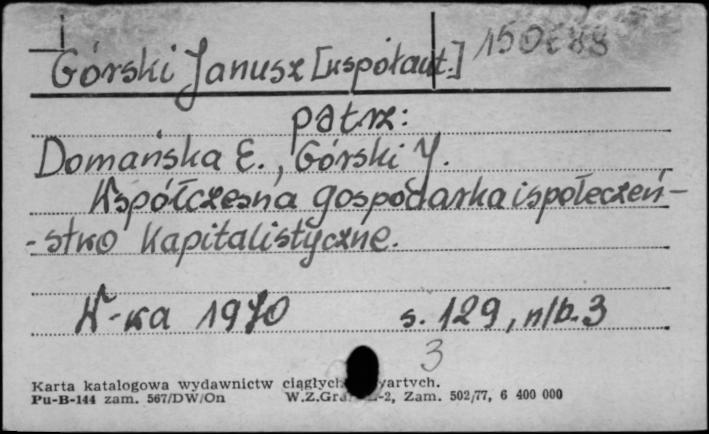 Górski Janusz [współaut.] 150688
patrz:
Domańska E., Górski J.
Współczesna gospodarka i społeczeń-
-stwo kapitalistyczne.
W-wa 1970 s. 129, nlb. 3
3
Karta katalogowa wydawnictw ciągłych
Pu-B-144 zam. 567/DW/On W.Z.Graf. Z-2, Zam. 502/77, 6 400 000